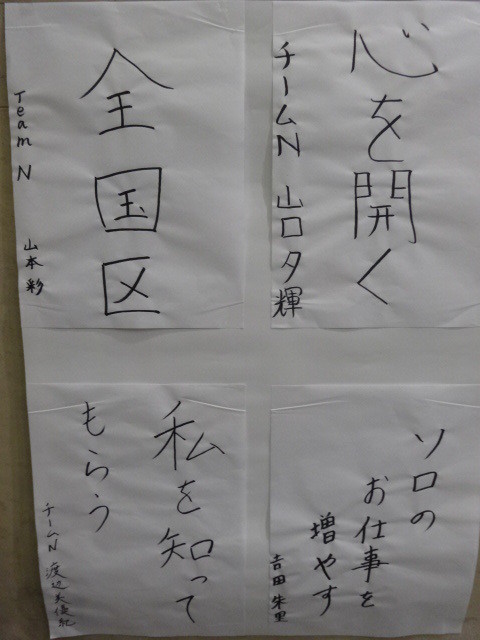 心を開く
チームN 山口夕輝
全国区
Team N 山本彩
ソロの
お仕事を
増やす
吉田朱里
私を知って
もらう
チームN 渡辺美優紀